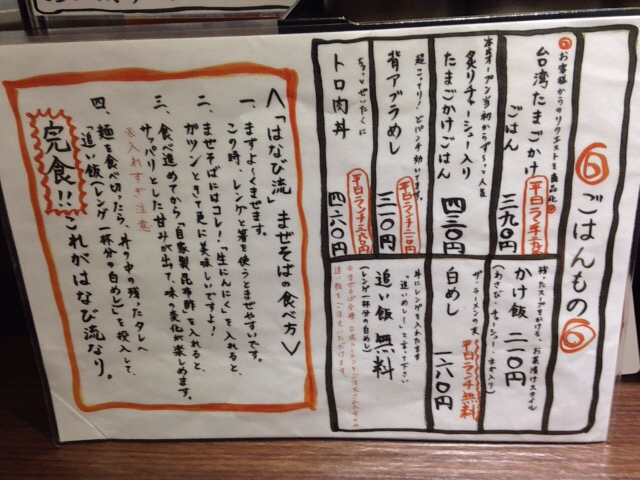 ごはんもの
お客様からのリクエストを商品化
台湾たまごかけ
ごはん
三九〇円
本店オープン当初からず〜っと人気
炙りチャーシュー入り
たまごかけごはん
四三〇円
超こってり!とパンチ効いてます。
背アブラめし
三一〇円
平日ランチ二一〇円
ちょっとぜいたくに
トロ肉丼
四六〇円
平日ランチ三六〇円
残ったスープをかける、お茶漬けスタイル
かけ飯 二一〇円
(わさび、チャーシュー、ネギ入り)
ザ・ラーメンの友
白めし 一六〇円
平日ランチ無料
丼にレンゲを入れたまま
「追いめし」と言って下さい
追い飯 無料
(レンゲ一杯分の白めし)
<「はなび流」まぜそばの食べ方>
一、ますよ〜くまぜます。
この時、レンゲと箸を使うとまぜやすいです。
二、まぜそばにはコレ!「生にんにく」を入れると、
ガツンときて更に美味しいですよ!
三、食べ進めてから「自家製昆布酢」を入れると、
サッパリとした甘みが出て、味の変化が楽しめます。
※入れすぎ注意
四、麺を食べ切ったら、丼の中の残ったタレへ
「追い飯(レンゲ一杯分の白めし)」を投入して、
完食!!これがはなび流なり。